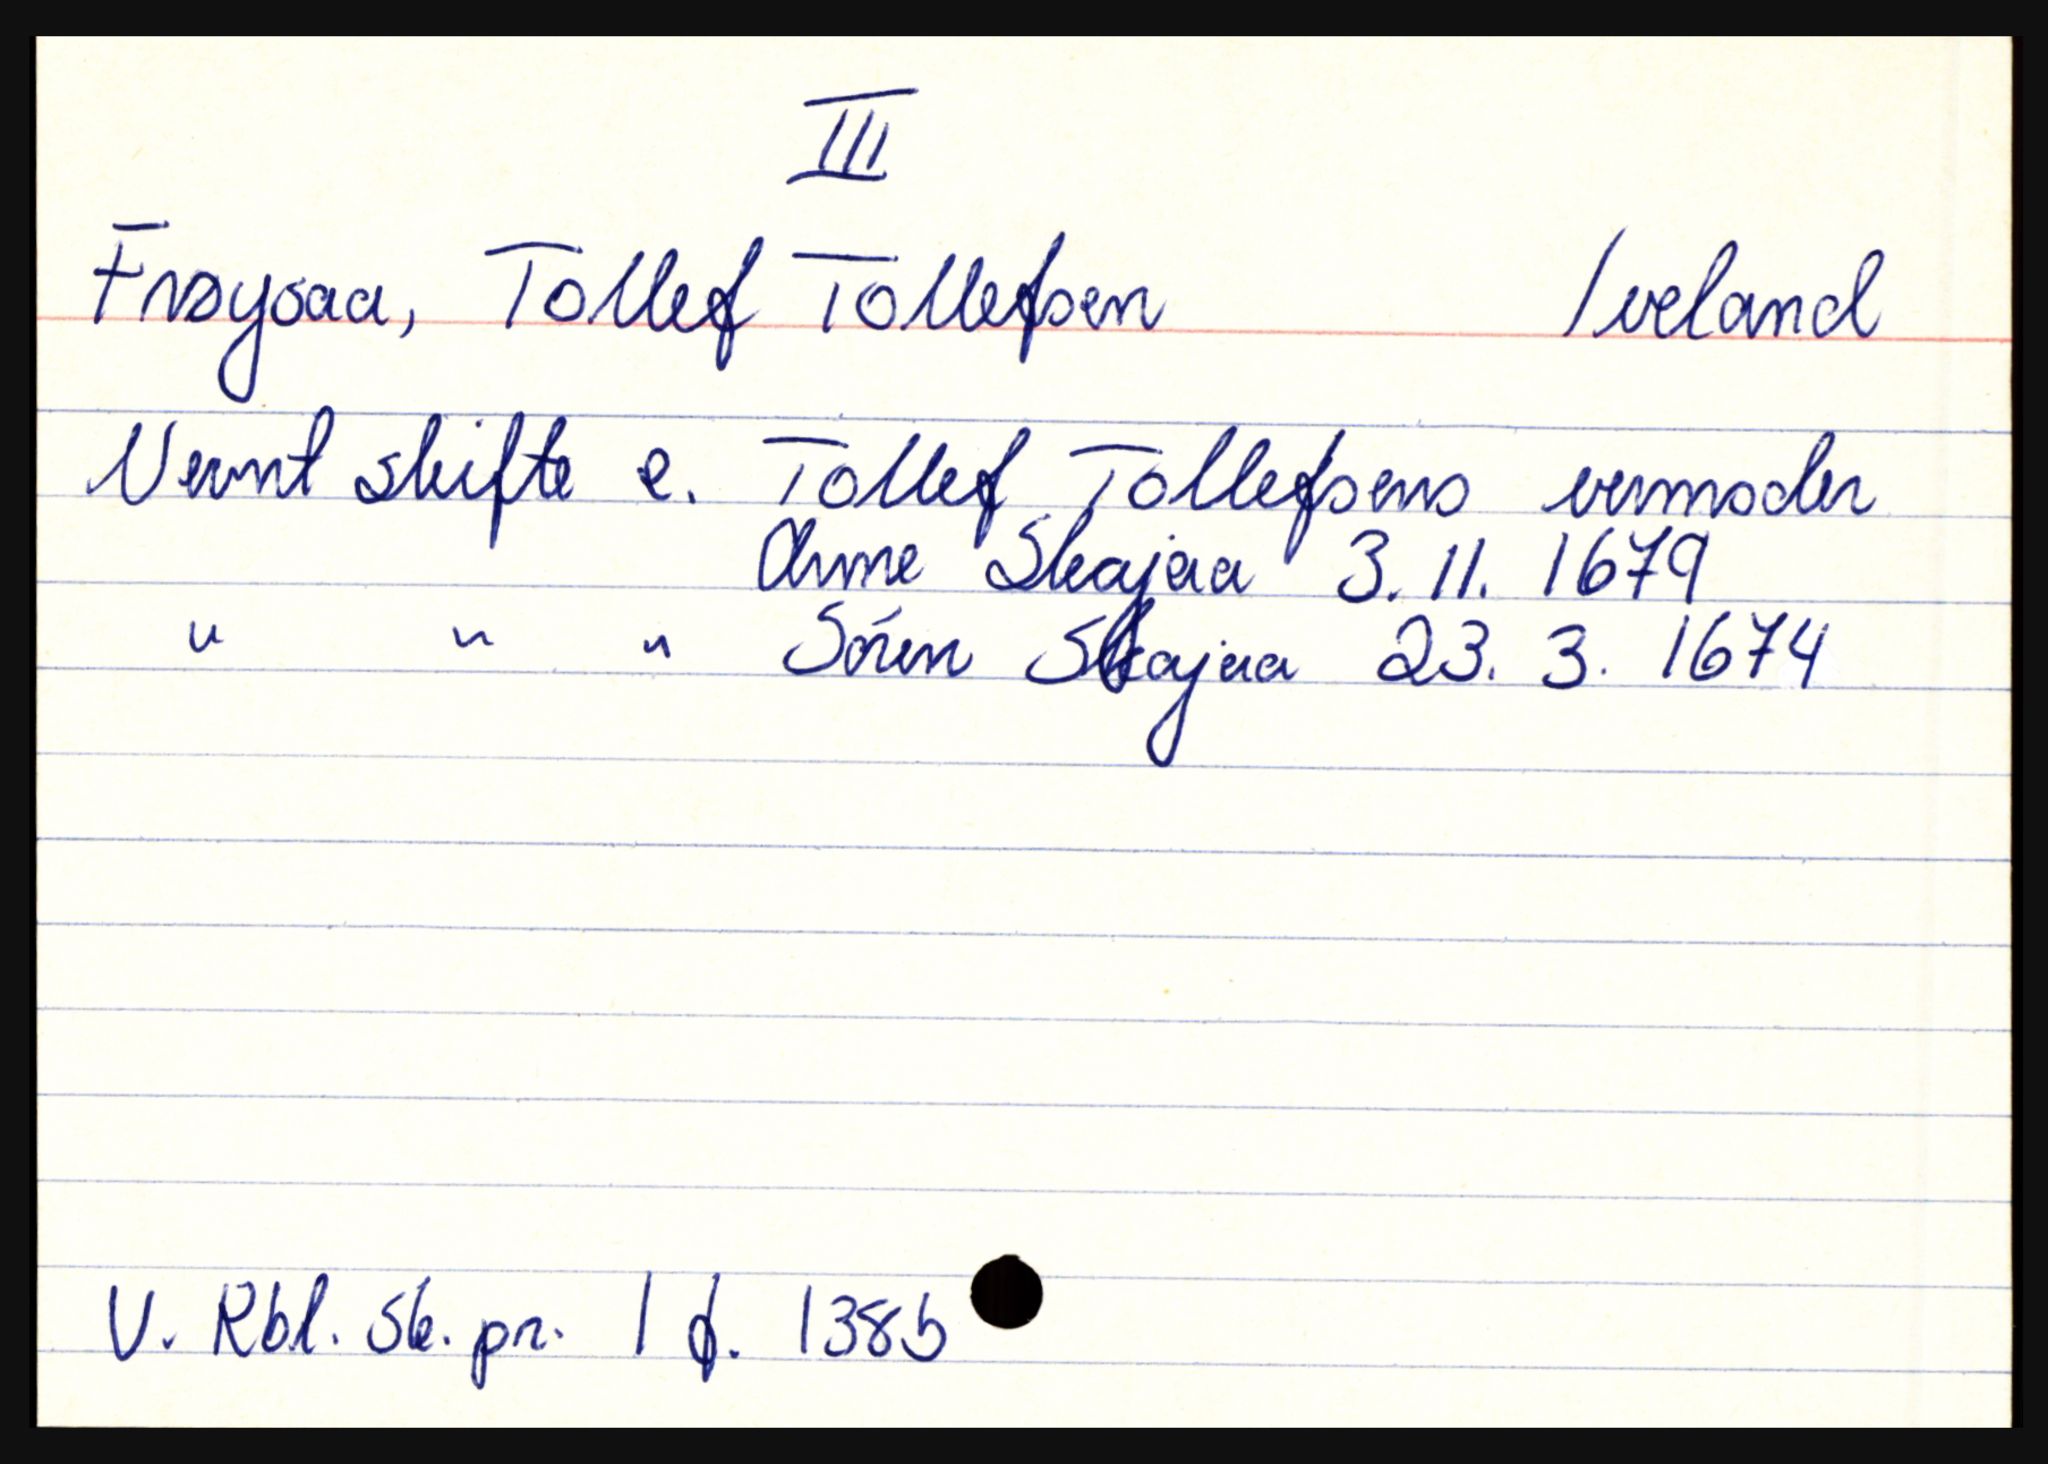 III
Frøysaa, Tollef Tollefsen Iveland
Nevnt skifte e. Tollef Tollefsens vermoder
Anne Skajaa 3. 11. 1679
" " " Sören Skajaa 23. 3. 1674
V. Rbl. Sk. pr. 1 f. 138b